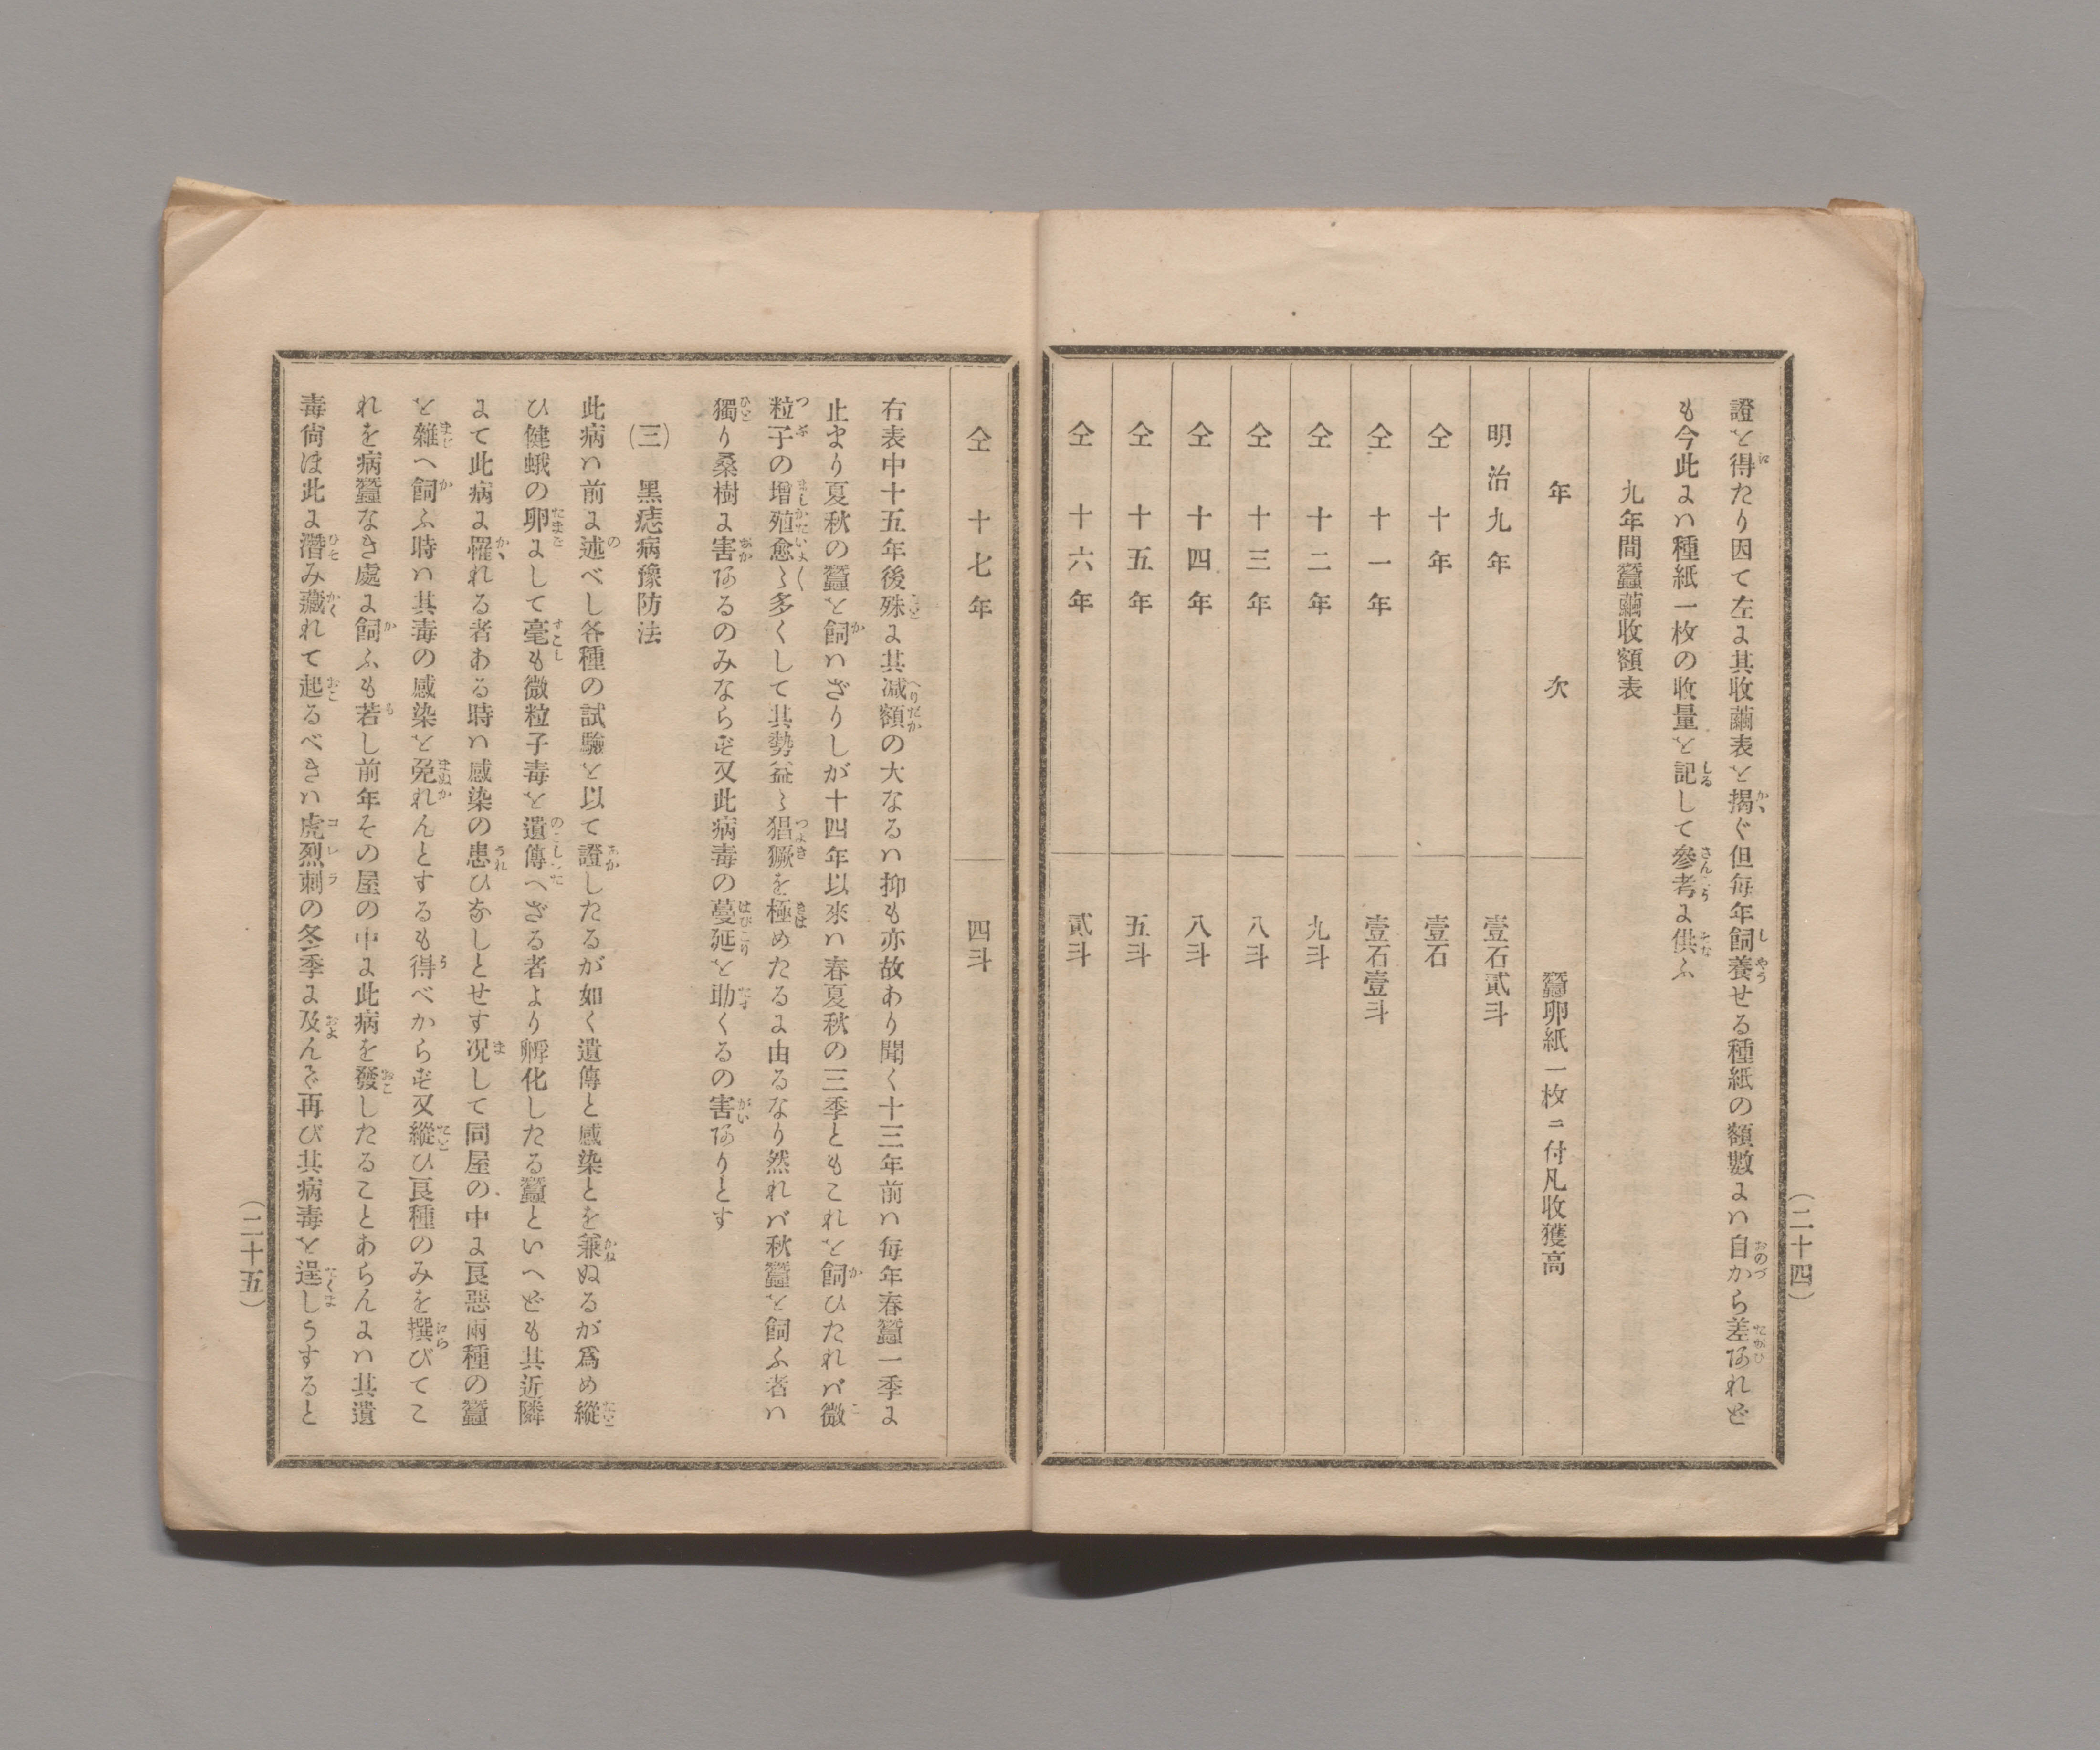 證を得たり因て左に其收繭表を揭ぐ但毎年飼養せる種紙の額數にハ自から差あれど
も今此にハ種紙一枚の收量を記して參考に供ふ
九年間蠶繭收額表
年次 蠶卵紙一枚ニ付凡收獲高
明治九年 壹石貳斗
仝十年 壹石
仝十一年 壹石壹斗
仝十二年 九斗
仝十三年 八斗
仝十四年 八斗
仝十五年 五斗
仝十六年 貳斗
(二十四)
仝十七年 四斗
右表中十五年後殊に其減額の大なるハ抑も亦故あり聞く十三年前ハ毎年春蠶一季に
止まり夏秋の蠶を飼ハざりしが十四年以來ハ春夏秋の三季ともこれを飼ひたれバ微
粒子の增殖愈〻多くして其勢益〻猖獗を極めたるに由るなり然れバ秋蠶を飼ふ者ハ
獨り桑樹に害あるのみならず又此病毒の蔓延を助くるの害ありとす
(三) 黑痣病豫防法
此病ハ前に述べし各種の試驗を以て證したるが如く遺傳と感染とを兼ぬるが爲め縱
ひ健蛾の卵にして毫も微粒子毒を遺傳へざる者より孵化したる蠶といへども其近隣
にて此病に罹れる者ある時ハ感染の患ひなしとせす况して同屋の中に良惡兩種の蠶
を雜へ飼ふ時ハ其毒の感染を免れんとするも得べからず又縱ひ良種のみを撰びてこ
れを病蠶なき處に飼ふも若し前年その屋の中に此病を發したることあらんにハ其遺
毒尙ほ此に潛み藏れて起るべきハ虎烈剌の冬季に及んで再び其病毒を逞しうすると
(二十五)